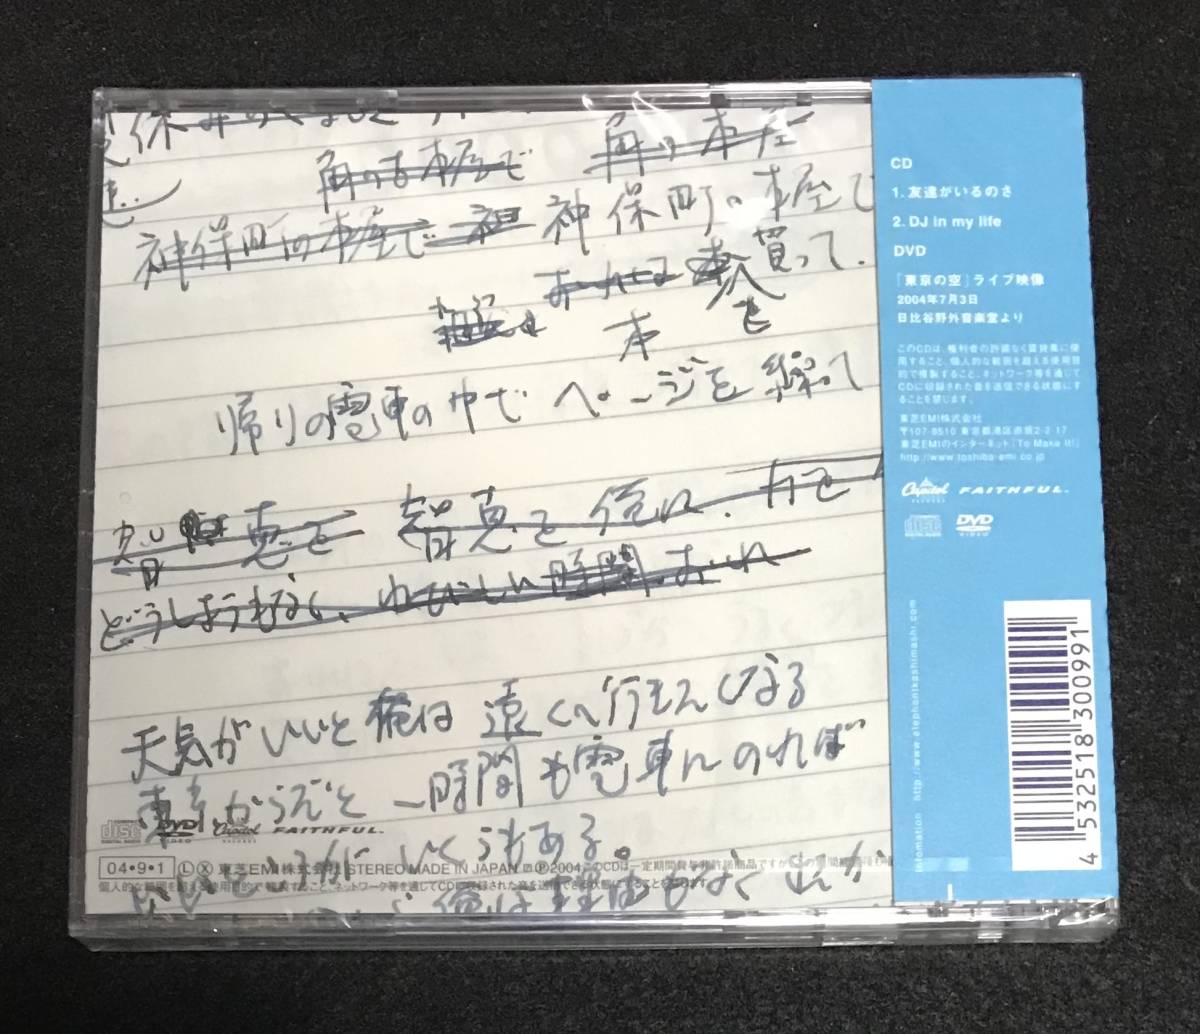 角の古本屋で 角の本屋
神保町の本屋で 神保町の本屋で
買って、
本を
帰りの電車の中で ページを繰って
智恵を 智恵を
どうしようもなく、わびしい時間
天気がいいと俺は遠くへ行きたくなる
東京からだと一時間も電車にのれば
いくらもある。
俺は
CD
1. 友達がいるのさ
2. DJ in my life
DVD
「東京の空」ライブ映像
2004年7月3日
日比谷野外音楽堂より
このCDは、権利者の許諾なく賃貸業に使
用すること、個人的な範囲を超える使用目
的で複製すること、ネットワーク等を通じて
CDに収録された音を送信できる状態にす
ることを禁じます。
東芝EMI株式会社
〒107-8510 東京都港区赤坂2-2-17
東芝EMIのインターネット「To Make It!」
http://www.toshiba-emi.co.jp
Capitol RECORDS FAITHFUL.
disc DIGITAL AUDIO DVD VIDEO
information http://www.elephantkashimashi.com
4 532518 300991
disc DIGITAL AUDIO DVD VIDEO Capitol RECORDS FAITHFUL.
04・9・1 Ⓛ Ⓧ 東芝EMI株式会社 STEREO MADE IN JAPAN Ⓟ2004 このCDは一定期間貸与非許諾商品ですが
個人的な範囲を超える使用目的で複製すること、ネットワーク等を通じてCDに収録された音を送信できる状態にすることを禁じます